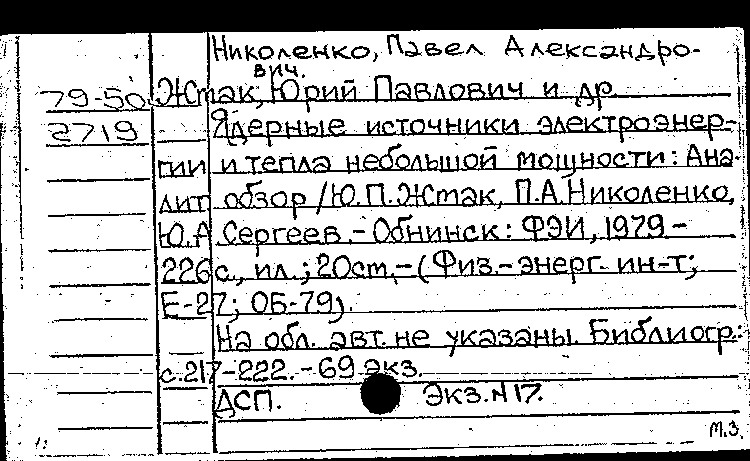 Николенко, Павел Александро-
вич.
79-50 Жтак, Юрий Павлович и др
2719 Ядерные источники электроэнер-
гии и тепла небольшой мощности: Ана-
лит обзор /Ю.П.Жтак, П.А.Николенко,
Ю.А Сергеев.-Обнинск: ФЭИ, 1979-
226с., ил.; 20см,-(Физ.-энерг. ин-т;
Е-27; ОБ-79).
На обл. авт. не указаны. Библиогр.:
с.217-222.-69 экз.
ДСП. Экз.N17.
М.З.